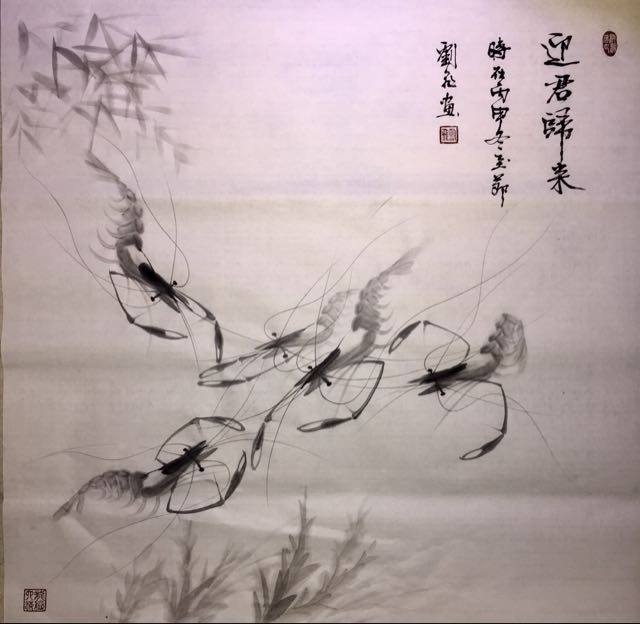 迎君歸来
時在丙申冬至節
劉在画